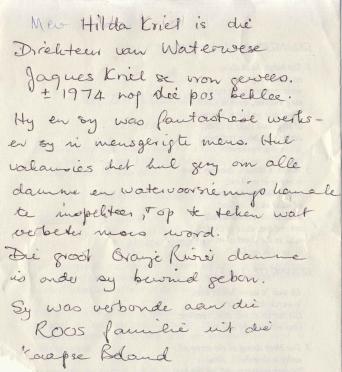 Mev Hilda Kriel is die
Direkteur van Waterwese
Jaques Kriel se vrou gewees.
± 1974 nog die pos beklee.
Hy en sy was fantastiese werks-
en sy 'n mensgerigte mens. Hul
vakansies het hul gery om alle
damme en watervoorsienings kanale
te inspekteer, op te teken wat
verbeter moes word.
Die groot Oranje Rivier damme
is onder sy bewind gebou.
Sy was verbonde aan die
ROOS familie uit die
Kaapse Boland